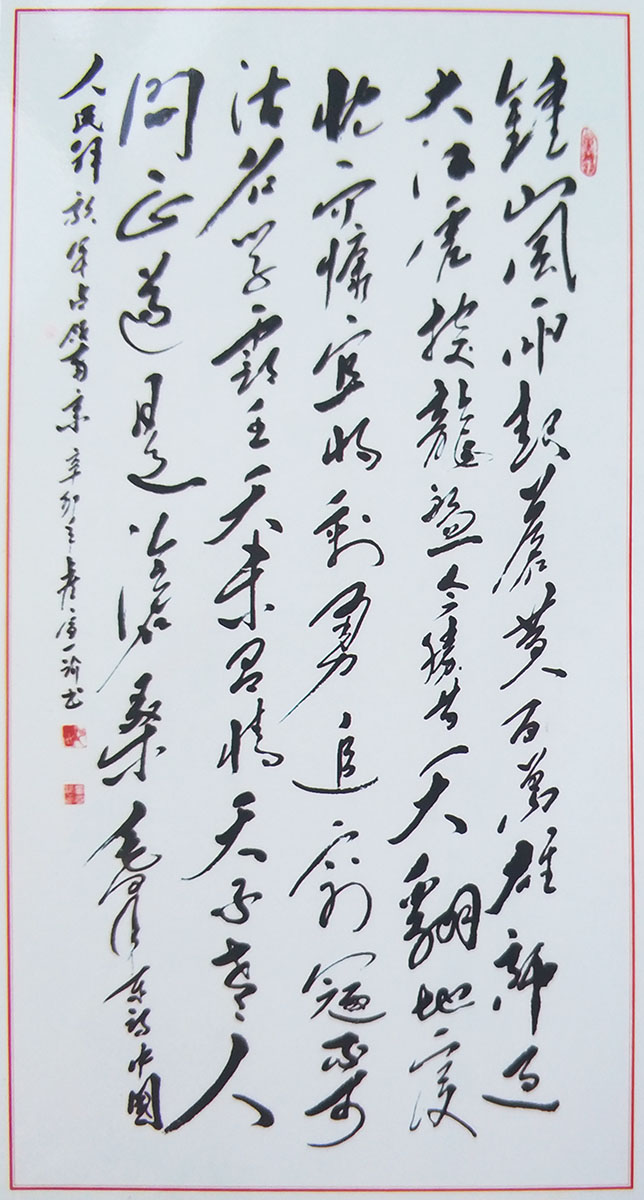 鍾山風雨起蒼黃百萬雄師過
大江虎踞龍盤今勝昔天翻地覆
慨而慷宜將剩勇追窮寇不可
沽名學霸王天若有情天亦老人
間正道是滄桑毛澤東詩中國
人民解放軍占領南京辛卯年春書